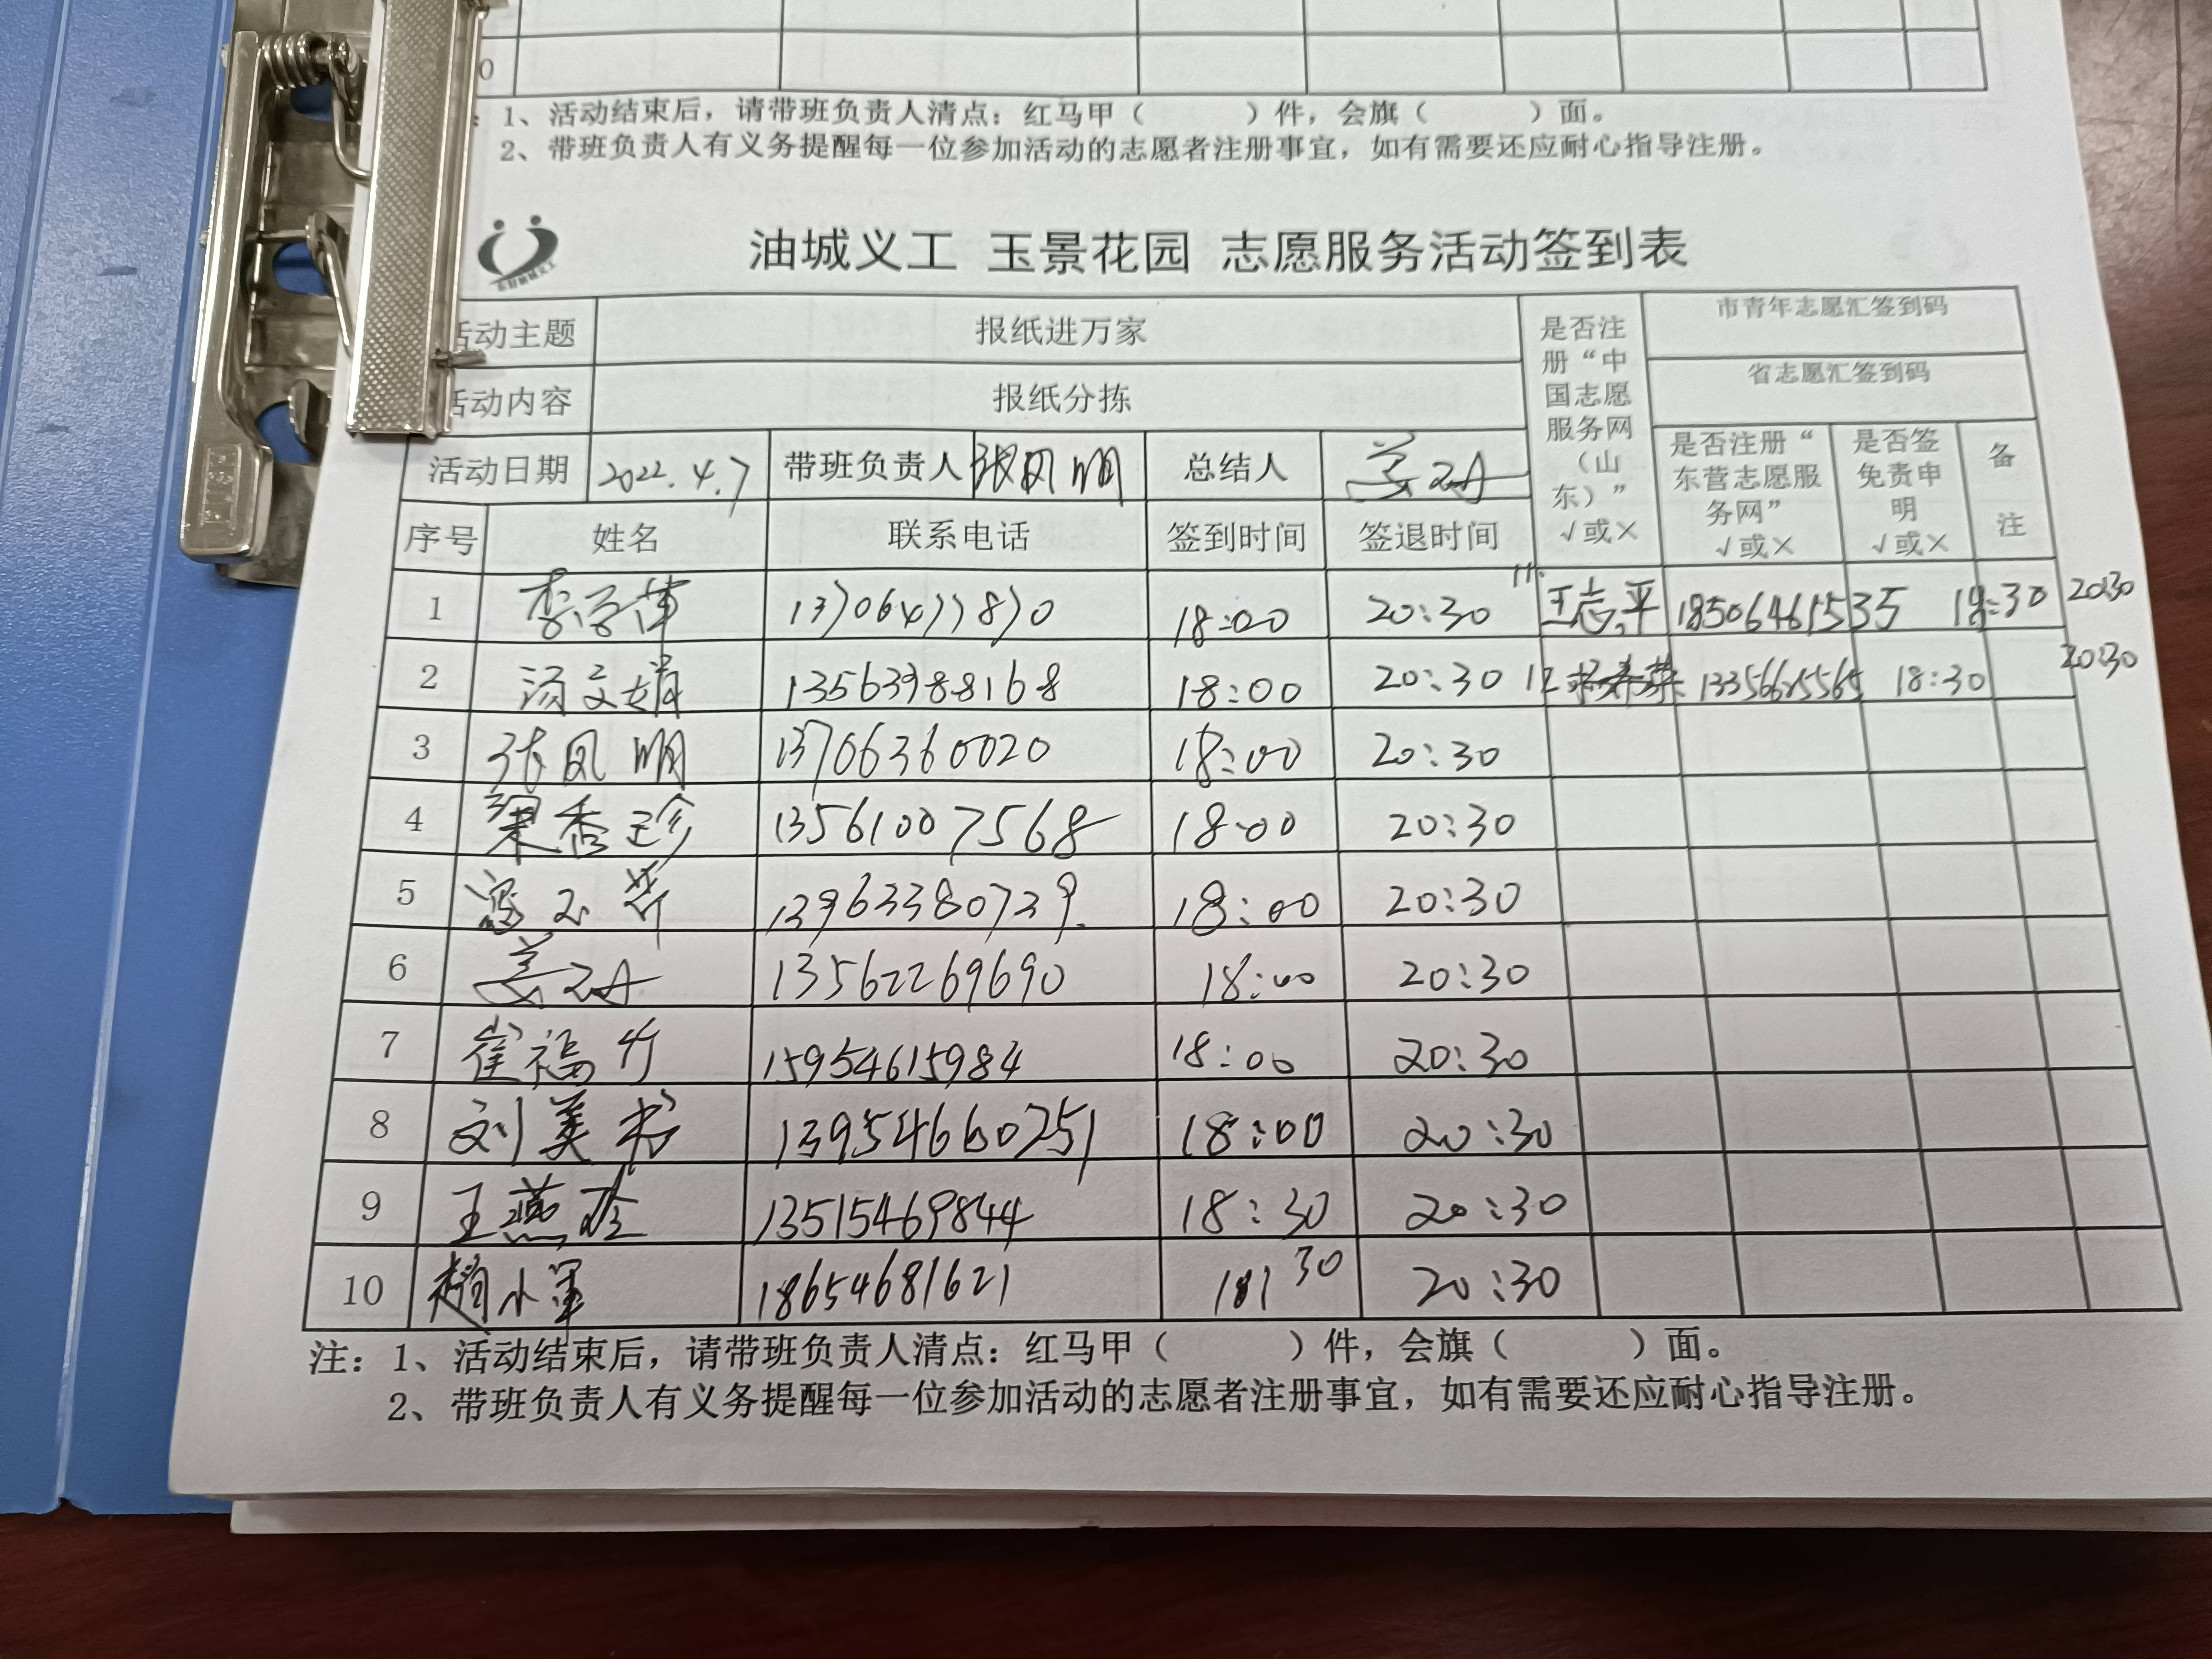 0
1、活动结束后，请带班负责人清点：红马甲（ ）件，会旗（ ）面。
2、带班负责人有义务提醒每一位参加活动的志愿者注册事宜，如有需要还应耐心指导注册。
油城义工 玉景花园 志愿服务活动签到表
活动主题 报纸进万家 是否注册“中国志愿服务网（山东）” √或× 市青年志愿汇签到码
活动内容 报纸分拣 省志愿汇签到码
活动日期 2022.4.7 带班负责人 张凤明 总结人 姜 是否注册“东营志愿服务网” √或× 是否签免责申明 √或× 备注
序号 姓名 联系电话 签到时间 签退时间
1 李 13706477870 18:00 20:30 11. 王志平 18506461535 18:30 20:30
2 汤文娟 13563988168 18:00 20:30 12 18:30 20:30
3 张凤明 13706360020 18:00 20:30
4 梁香珍 13561007568 18:00 20:30
5 13963380739. 18:00 20:30
6 姜 13562269690 18:00 20:30
7 崔福竹 15954615984 18:00 20:30
8 刘美书 13954660751 18:00 20:30
9 王燕 13515469844 18:30 20:30
10 赵小军 18654681621 181 30 20:30
注：1、活动结束后，请带班负责人清点：红马甲（ ）件，会旗（ ）面。
2、带班负责人有义务提醒每一位参加活动的志愿者注册事宜，如有需要还应耐心指导注册。